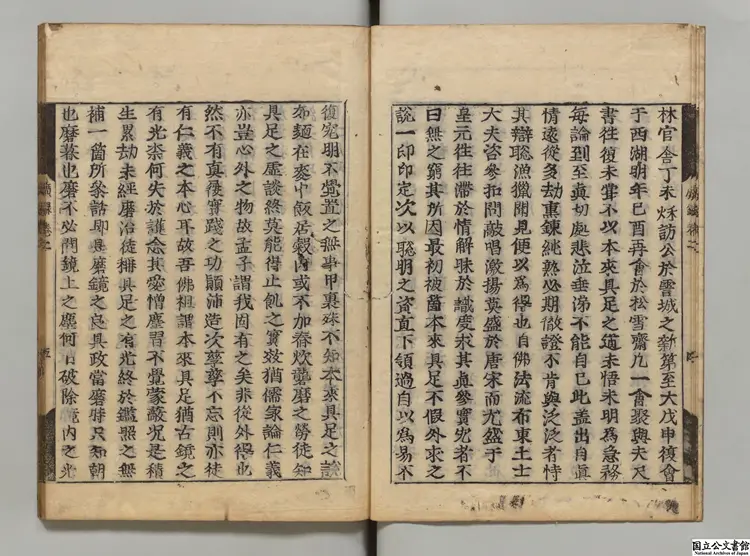 林官舍丁未秌訪公於霅城之新第至大戊申復會
于西湖明年己酉再會於松雪齋凡一會聚與夫尺
書往復未甞不以本來具足之道未悟未明為急務
每論到至真切處悲泣垂涕不能自已此盖出自真
情遠從多劫熏鍊純熟必期徹證不肯與泛泛者恃
其辯聡漁獵聞見便以為得也自佛法流布東土士
大夫咨參扣問敲唱激揚莫盛於唐宋而尤盛于
皇元往往滯於情解昧於識度求其真參實究者不
曰無之窮其所因最初被箇本來具足不假外求之
說一印印定次以聡明之資直下領過自以為易不
復究明不覺置之無事甲裏殊不知本來具足之談
如麵在麥中飯居穀內或不加舂炊礱磨之勞徒知
具足之虛談終莫能得止飢之實效猶儒家論仁義
亦豈心外之物故孟子謂我固有之矣非從外得也
然不有真履實踐之功顛沛造次孳孳不忘則亦徒
有仁義之本心耳故吾佛祖謂本來具足猶古鏡之
有光柰何失於護念其愛憎塵習不覺蒙蔽况是積
生累劫未經磨治徒排具足之有光終於鑑照之無
補一箇所參話即是磨鏡之良具政當磨時只知朝
也磨暮也磨不必問鏡上之塵何日破除鏡內之光
国立公文書館
National Archives of Japan